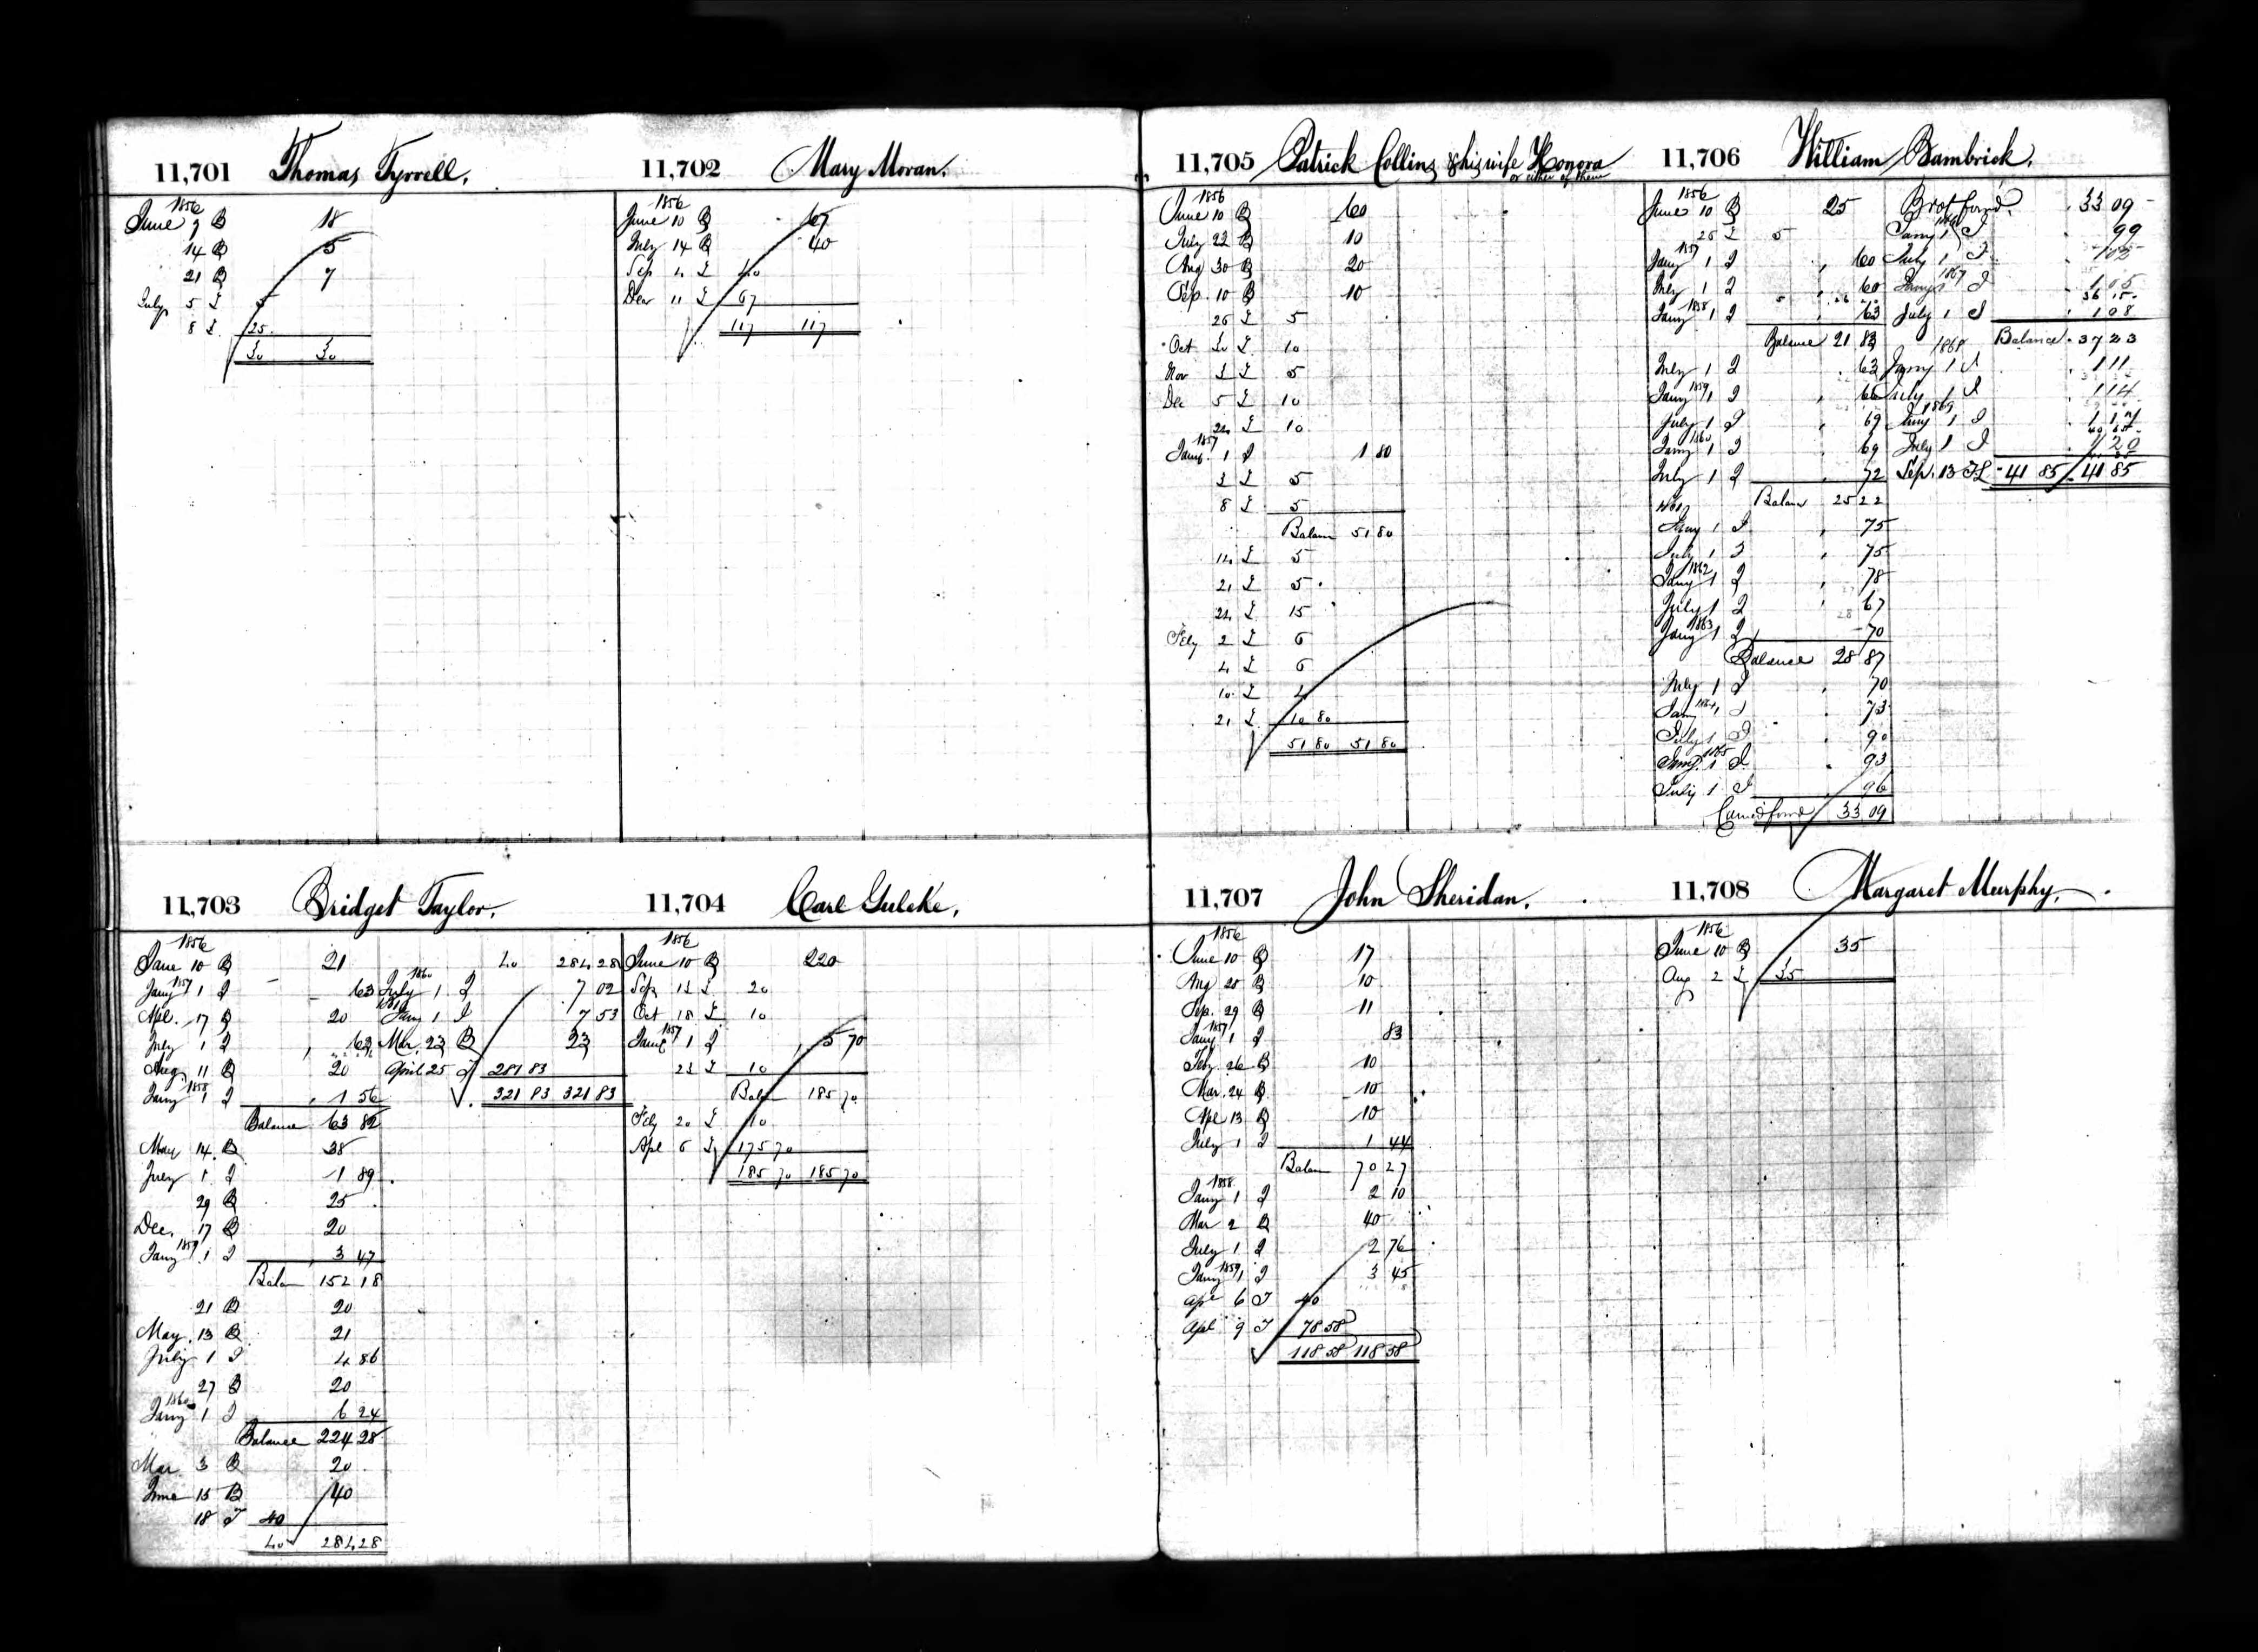 11,701 Thomas Tyrrell.
1856
June 9 B 18
14 B 5
21 B 7
July 5 £ 5
8 £ 25
30 30
11,702 Mary Moran.
1856
June 10 B
July 14 B 40
Sep 4 £
Dec 11 £ 67
117 117
11,703 Bridget Taylor.
1856
June 10 B 21
1857
Jany 1 I 63
Apl. 17 B 20
July 1 I 62
Aug 11 B 20
1858
Jany 1 I 1 56
Balance 63 82
May 14 B 38
July 1 I 1 89
29 B 25
Dec. 17 B 20
1859
Jany 1 I 3 47
Balan 152 18
21 B 20
May 13 B 21
July 1 I 4 86
27 B 20
1860
Jany 1 I 6 24
Balance 224 28
Mar 3 B 20
June 15 B 40
18 T 40
40 284 28
40 284 28
1860
July 1 I 7 02
1861
Jany 1 I 7 53
Mar. 23 B 23
April 25 T 281 83
321 83 321 83
11,704 Carl Gulcke.
1856
June 10 B 220
Sep 13 £ 20
Oct 18 £ 10
1857
Jany 1 I 5 70
23 £ 10
Balan 185 70
Feby 20 £ 10
Apl 6 £ 175 70
185 70 185 70
11,705 Patrick Collins & his wife Honora
or either of them
1856
June 10 B 60
July 22 B 10
Aug 30 B 20
Sep. 10 B 10
25 £ 5
Oct 30 £ 10
Nov 3 £ 5
Dec 5 £ 10
24 £ 10
1857
Jany. 1 I 1 80
3 £ 5
8 £ 5
Balan 51 80
14 £ 5
21 £ 5
24 £ 15
Feby 2 £ 6
4 £ 6
10 £ 4
21 £ 10 80
51 80 51 80
11,706 William Bambrick.
1856
June 10 B 25
25 £ 5
1857
Jany 1 I 60
July 1 I 60
1858
Jany 1 I 63
Balance 21 83
July 1 I 63
1859
Jany 1 I 66
July 1 I 69
1860
Jany 1 I 69
July 1 I 72
Balan 25 22
1861
Jany 1 I 75
July 1 I 75
1862
Jany 1 I 78
July 1 I 67
1863
Jany 1 I 70
Balance 28 87
July 1 I 70
1864
Jany 1 I 73
July 1 I 90
1865
Jany. 1 I 93
July 1 I 96
Carried forwd 33 09
Brot forwd. 33 09
1866
Jany 1 I 99
July 1 I 102
1867
Jany 1 I 1 05
July 1 I 1 08
Balance 37 23
1868
Jany 1 I 1 11
July 1 I 1 14
1869
Jany 1 I 1 17
July 1 I 1 20
Sep. 13 TL 41 85 41 85
11,707 John Sheridan.
1856
June 10 B 17
Aug 20 B 10
Sep. 29 B 11
1857
Jany 1 I 83
Feby 26 B 10
Mar. 24 B 10
Apl 13 B 10
July 1 I 1 44
Balan 70 27
1858
Jany 1 I 2 10
Mar 2 B 40
July 1 I 2 76
1859
Jany 1 I 3 45
Apl 6 T 40
Apl 9 T 78 58
118 58 118 58
11,708 Margaret Murphy.
1856
June 10 B 35
Aug 2 £ 35